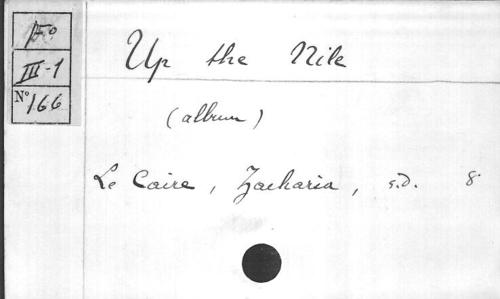 Fº
III-1
Nº 166
Up the Nile
(album)
Le Caire, Zacharia, s.d. 8